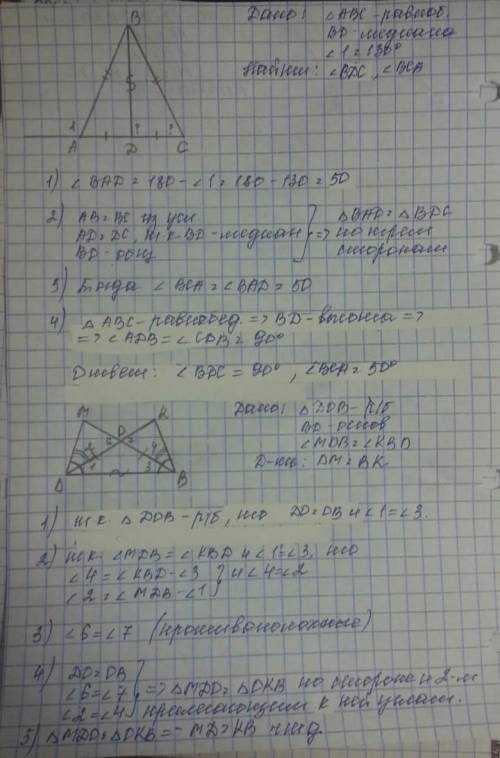 Дано: △ABC - равноб.
BD - медиана
∠1 = 130°
Найти: ∠BDC, ∠BCA
B
1
A
D
C
?
?
1) ∠BAD = 180 - ∠1 = 180 - 130 = 50
2) AB = BC из усл.
AD = DC, т.к. BD - медиан
BD - общ
} => △BAD = △BDC
по трем
сторонам
3) Тогда ∠BCA = ∠BAD = 50
4) △ABC - равнобед. => BD - высота =>
=> ∠ADB = ∠CDB = 90°
Ответ: ∠BDC = 90°, ∠BCA = 50°
M
K
O
D
B
1
2
3
4
Дано: △DOB - р/б
BD - основ
∠MDB = ∠KBD
Д-ть: DM = BK
1) т.к. △DOB - р/б, то DO = OB и ∠1 = ∠3.
2) т.к. ∠MDB = ∠KBD и ∠1 = ∠3, то
∠4 = ∠KBD - ∠3
∠2 = ∠MDB - ∠1
} и ∠4 = ∠2
3) ∠6 = ∠7 (противоположные)
4) DO = OB
∠6 = ∠7
∠2 = ∠4
} => △MDO = △OKB по стороне и 2-м
прилегающим к ней углам.
5) △MDO = △OKB => MD = KB чтд.